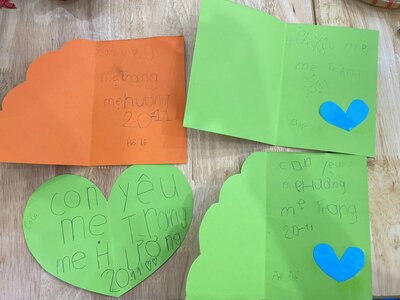 con yêu
mẹ Trang
mẹ hương
20-11
yêu mẹ
mẹ Trang
con yêu
mẹ Trang
mẹ Hương
20 11
con yêu
mẹ Hương
mẹ Trang
20-11